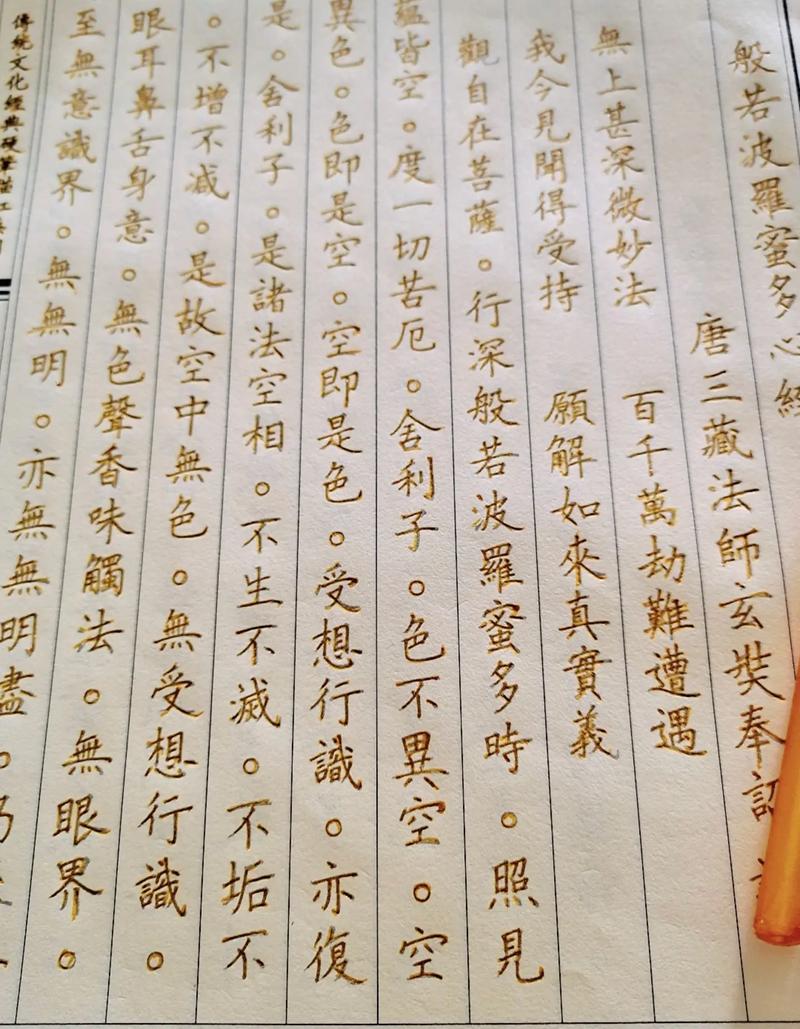 般若波羅蜜多心經
唐三藏法師玄奘奉詔
無上甚深微妙法 百千萬劫難遭遇
我今見聞得受持 願解如來真實義
觀自在菩薩。行深般若波羅蜜多時。照見
蘊皆空。度一切苦厄。舍利子。色不異空。空
異色。色即是空。空即是色。受想行識。亦復
是。舍利子。是諸法空相。不生不滅。不垢不
。不增不減。是故空中無色。無受想行識。
眼耳鼻舌身意。無色聲香味觸法。無眼界。
至無意識界。無無明。亦無無明盡。乃
傳統文化經典硬筆描